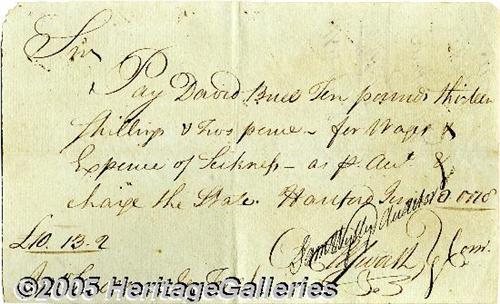 Sir
Pay David Buel Ten pounds thirteen
Shillings & Two pence - for Wages &
Expence of Sickness - as pr. Acct &
charge the State. Hartford 1778
£10. 13. 2
Saml Wyllys
©2005 HeritageGalleries